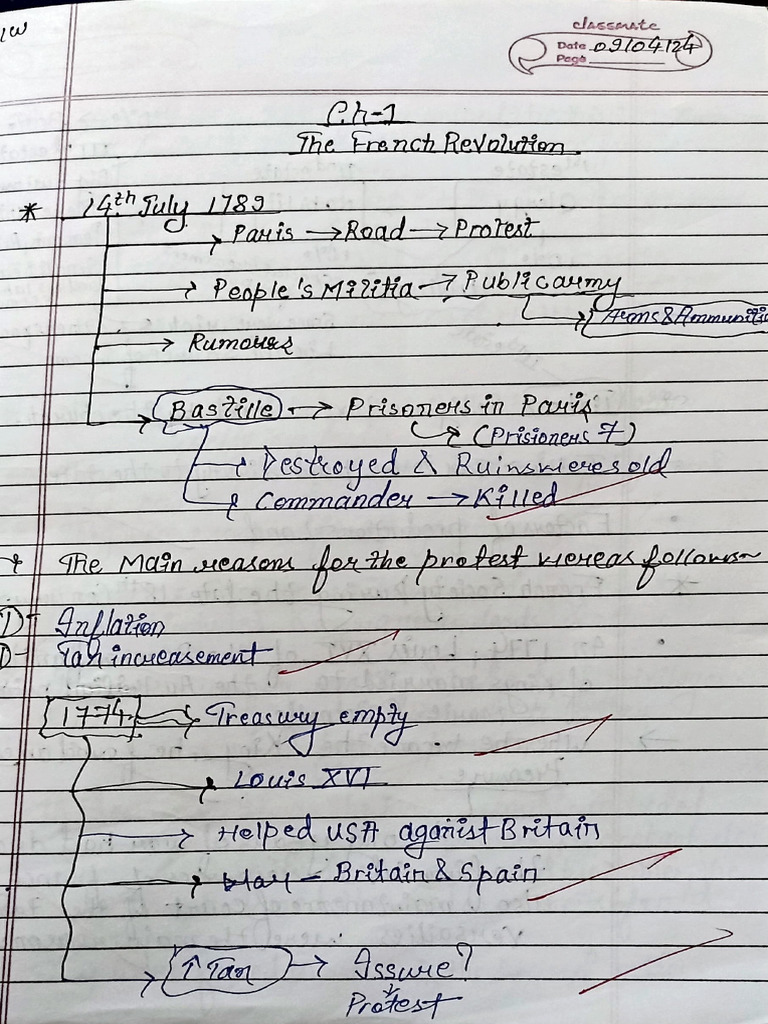 classmate
Date 09/04/24
Page
Ch-1
The French Revolution
* 14th July 1789
→ Paris → Road → Protest
→ People's Militia → Public army
→ Arms & Ammunitio
→ Rumours
→ Bastille → Prisoners in Paris
(Prisioners 7)
→ Destroyed & Ruins were sold
→ Commander → Killed
→ The Main reasons for the protest were as follows~
Inflation
Tax increasement
1774 → Treasury empty
→ Louis XVI
→ Helped USA aganist Britain
→ War - Britain & Spain
→ ↑ Tax → Assure?
Protest